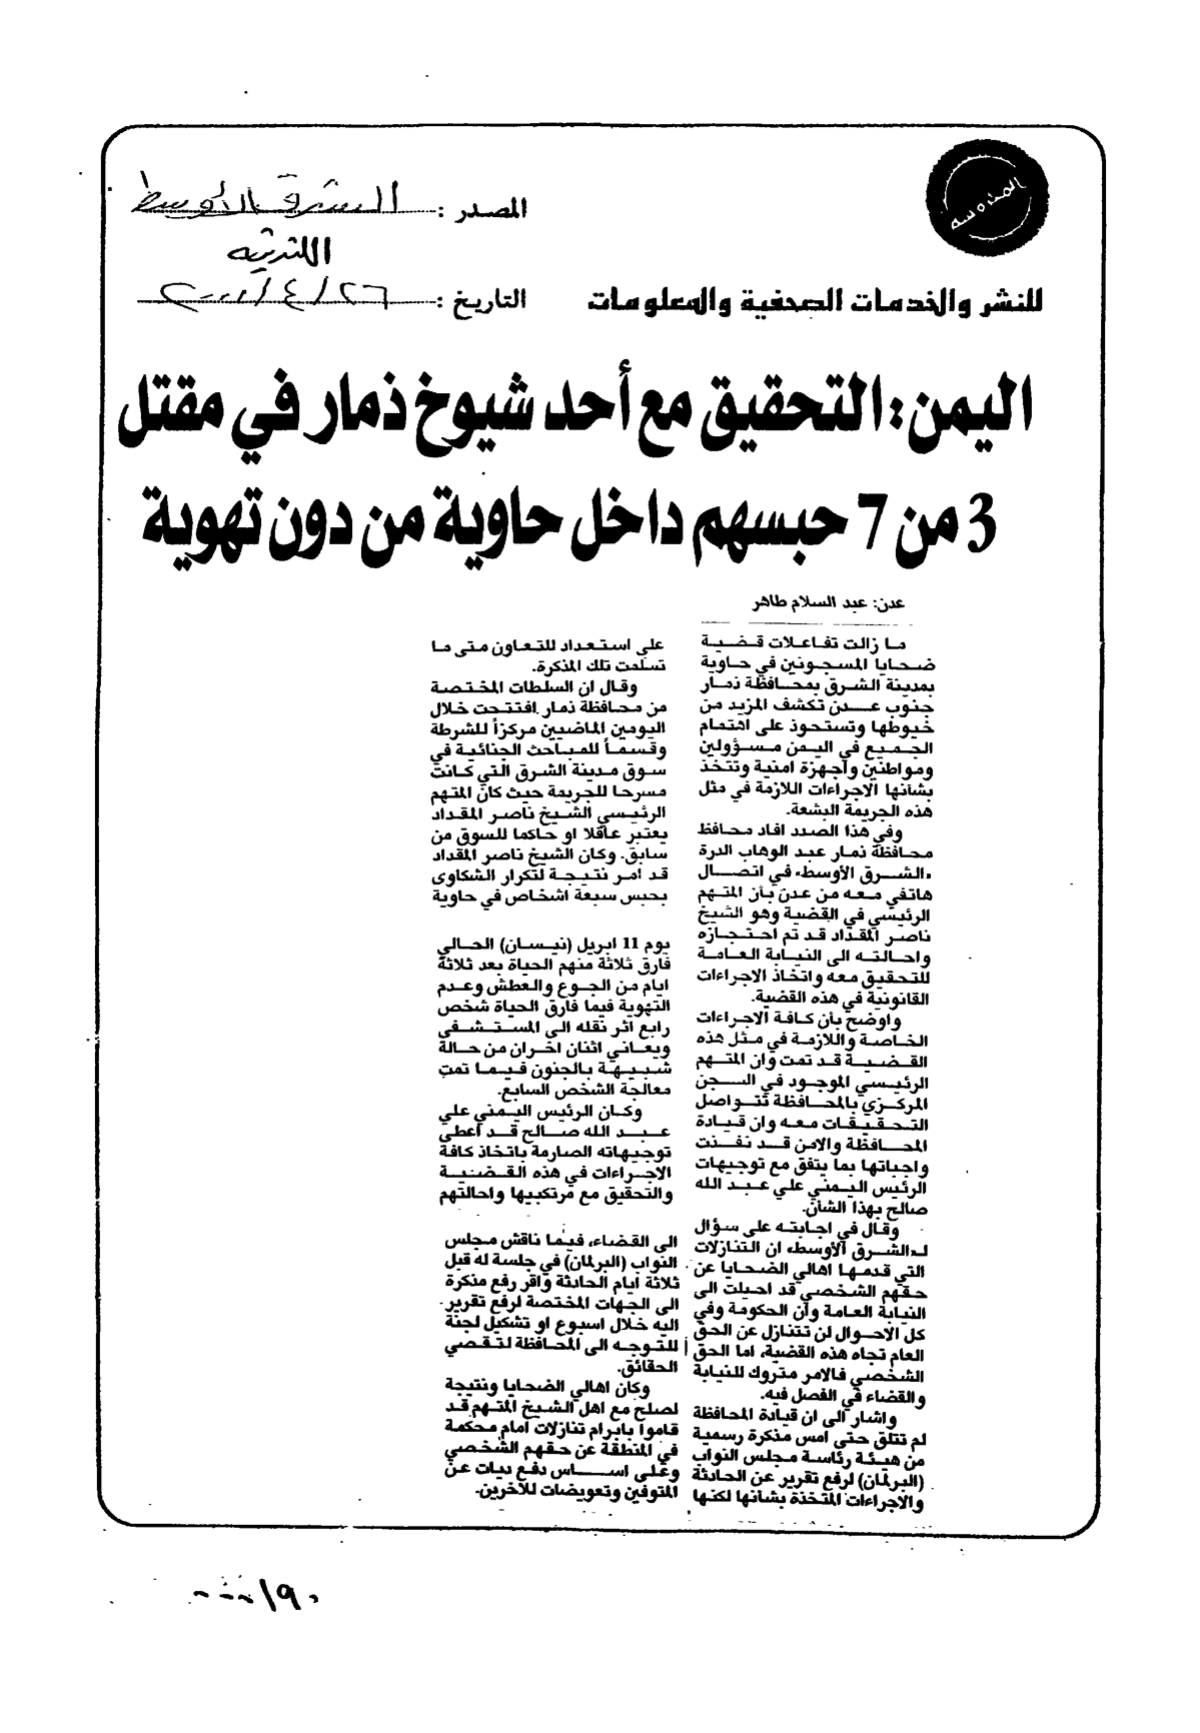 المصدر : الشرق الأوسط
اللندنية
للنشر والخدمات الصحفية والمعلومات
التاريخ : ٢٦/٤/٢٠٠١
اليمن: التحقيق مع أحد شيوخ ذمار في مقتل
3 من 7 حبسهم داخل حاوية من دون تهوية
عدن: عبد السلام طاهر
ما زالت تفاعلات قضية
ضحايا المسجونين في حاوية
بمدينة الشرق بمحافظة ذمار
جنوب عدن تكشف المزيد من
خيوطها وتستحوذ على اهتمام
الجميع في اليمن مسؤولين
ومواطنين واجهزة امنية وتتخذ
بشأنها الاجراءات اللازمة في مثل
هذه الجريمة البشعة.
وفي هذا الصدد افاد محافظ
محافظة ذمار عبد الوهاب الدرة
«الشرق الأوسط» في اتصال
هاتفي معه من عدن بأن المتهم
الرئيسي في القضية وهو الشيخ
ناصر المقداد قد تم احتجازه
واحالته الى النيابة العامة
للتحقيق معه واتخاذ الاجراءات
القانونية في هذه القضية.
واوضح بأن كافة الاجراءات
الخاصة واللازمة في مثل هذه
القضية قد تمت وان المتهم
الرئيسي الموجود في السجن
المركزي بالمحافظة تتواصل
التحقيقات معه وان قيادة
المحافظة والامن قد نفذت
واجباتها بما يتفق مع توجيهات
الرئيس اليمني علي عبد الله
صالح بهذا الشأن.
وقال في اجابته على سؤال
لـ«الشرق الأوسط» ان التنازلات
التي قدمها اهالي الضحايا عن
حقهم الشخصي قد احيلت الى
النيابة العامة وان الحكومة وفي
كل الاحوال لن تتنازل عن الحق
العام تجاه هذه القضية، اما الحق
الشخصي فالامر متروك للنيابة
والقضاء في الفصل فيه.
واشار الى ان قيادة المحافظة
لم تتلق حتى امس مذكرة رسمية
من هيئة رئاسة مجلس النواب
(البرلمان) لرفع تقرير عن الحادثة
والاجراءات المتخذة بشأنها لكنها
على استعداد للتعاون متى ما
تسلمت تلك المذكرة.
وقال ان السلطات المختصة
من محافظة ذمار افتتحت خلال
اليومين الماضيين مركزاً للشرطة
وقسماً للمباحث الجنائية في
سوق مدينة الشرق التي كانت
مسرحا للجريمة حيث كان المتهم
الرئيسي الشيخ ناصر المقداد
يعتبر عاقلا او حاكما للسوق من
سابق. وكان الشيخ ناصر المقداد
قد امر نتيجة لتكرار الشكاوى
بحبس سبعة اشخاص في حاوية
يوم 11 ابريل (نيسان) الحالي
فارق ثلاثة منهم الحياة بعد ثلاثة
ايام من الجوع والعطش وعدم
التهوية فيما فارق الحياة شخص
رابع اثر نقله الى المستشفى
ويعاني اثنان اخران من حالة
شبيهة بالجنون فيما تمت
معالجة الشخص السابع.
وكان الرئيس اليمني علي
عبد الله صالح قد اعطى
توجيهاته الصارمة باتخاذ كافة
الاجراءات في هذه القضية
والتحقيق مع مرتكبيها واحالتهم
الى القضاء، فيما ناقش مجلس
النواب (البرلمان) في جلسة له قبل
ثلاثة أيام الحادثة واقر رفع مذكرة
الى الجهات المختصة لرفع تقرير
اليه خلال اسبوع او تشكيل لجنة
للتوجه الى المحافظة لتقصي
الحقائق.
وكان اهالي الضحايا ونتيجة
لصلح مع اهل الشيخ المتهم قد
قاموا بابرام تنازلات امام محكمة
في المنطقة عن حقهم الشخصي
وعلى اساس دفع ديات عن
المتوفين وتعويضات للآخرين.